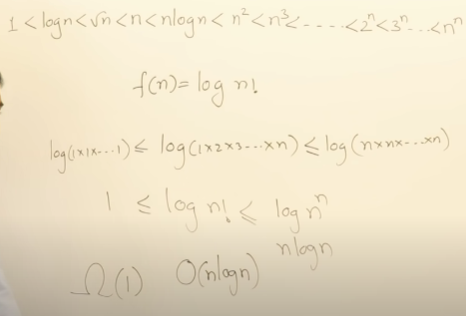 1 < logn < √n < n < nlogn < n² < n³ < - - - - < 2ⁿ < 3ⁿ... < nⁿ
f(n) = log n!
log(1×1×···1) ≤ log(1×2×3···×n) ≤ log(n×n×···×n)
1 ≤ log n! ≤ log nⁿ
Ω(1) O(nlogn) nlogn